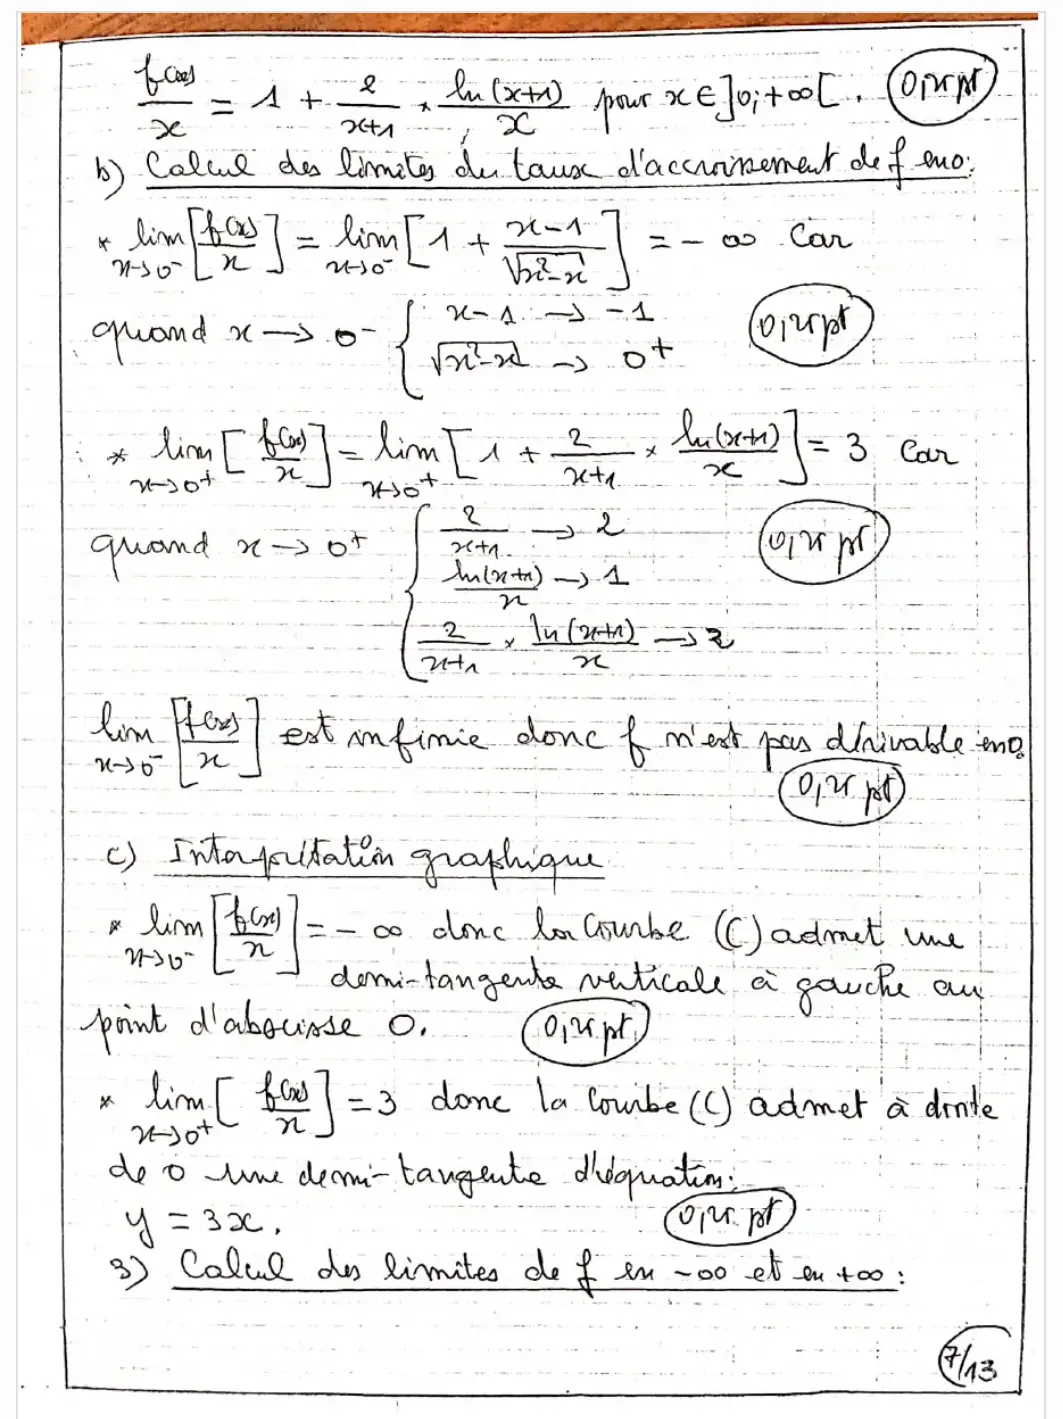 f(x)/x = 1 + 2/(x+1) × ln(x+1)/x pour x ∈ ]0;+∞[. (0,25 pt)
b) Calcul des limites du taux d'accroissement de f en 0:
* lim x→0⁻ [f(x)/x] = lim x→0⁻ [1 + (x-1)/√(x²-x)] = -∞ Car
quand x → 0⁻ { x-1 → -1 (0,25 pt)
√(x²-x) → 0⁺
* lim x→0⁺ [f(x)/x] = lim x→0⁺ [1 + 2/(x+1) × ln(x+1)/x] = 3 Car
quand x → 0⁺ { 2/(x+1) → 2 (0,25 pt)
ln(x+1)/x → 1
2/(x+1) × ln(x+1)/x → 2
lim x→0⁻ [f(x)/x] est infinie donc f n'est pas dérivable en 0.
(0,25 pt)
c) Interprétation graphique
* lim x→0⁻ [f(x)/x] = -∞ donc la Courbe (C) admet une
demi-tangente verticale à gauche au
point d'abscisse 0. (0,25 pt)
* lim x→0⁺ [f(x)/x] = 3 donc la Courbe (C) admet à droite
de 0 une demi-tangente d'équation:
y = 3x. (0,25 pt)
3) Calcul des limites de f en -∞ et en +∞ :
7/13